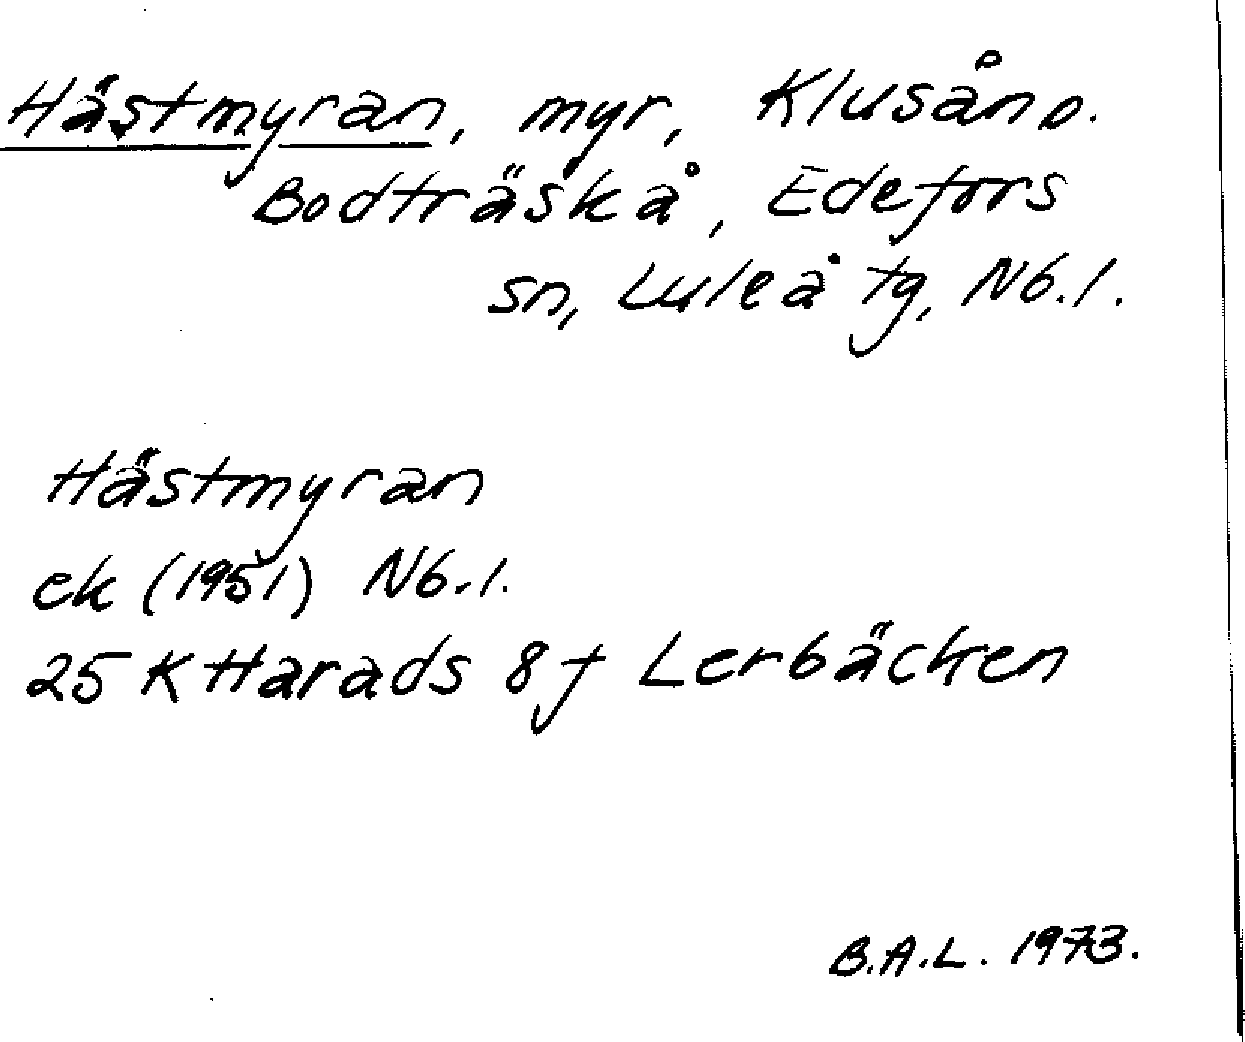 Hästmyran, myr, Klusån o.
Bodträskå, Edefors
sn, Luleå tg, Nb.l.
Hästmyran
ek (1951) Nb.l.
25 K Harads 8f Lerbäcken
B.A.L. 1973.